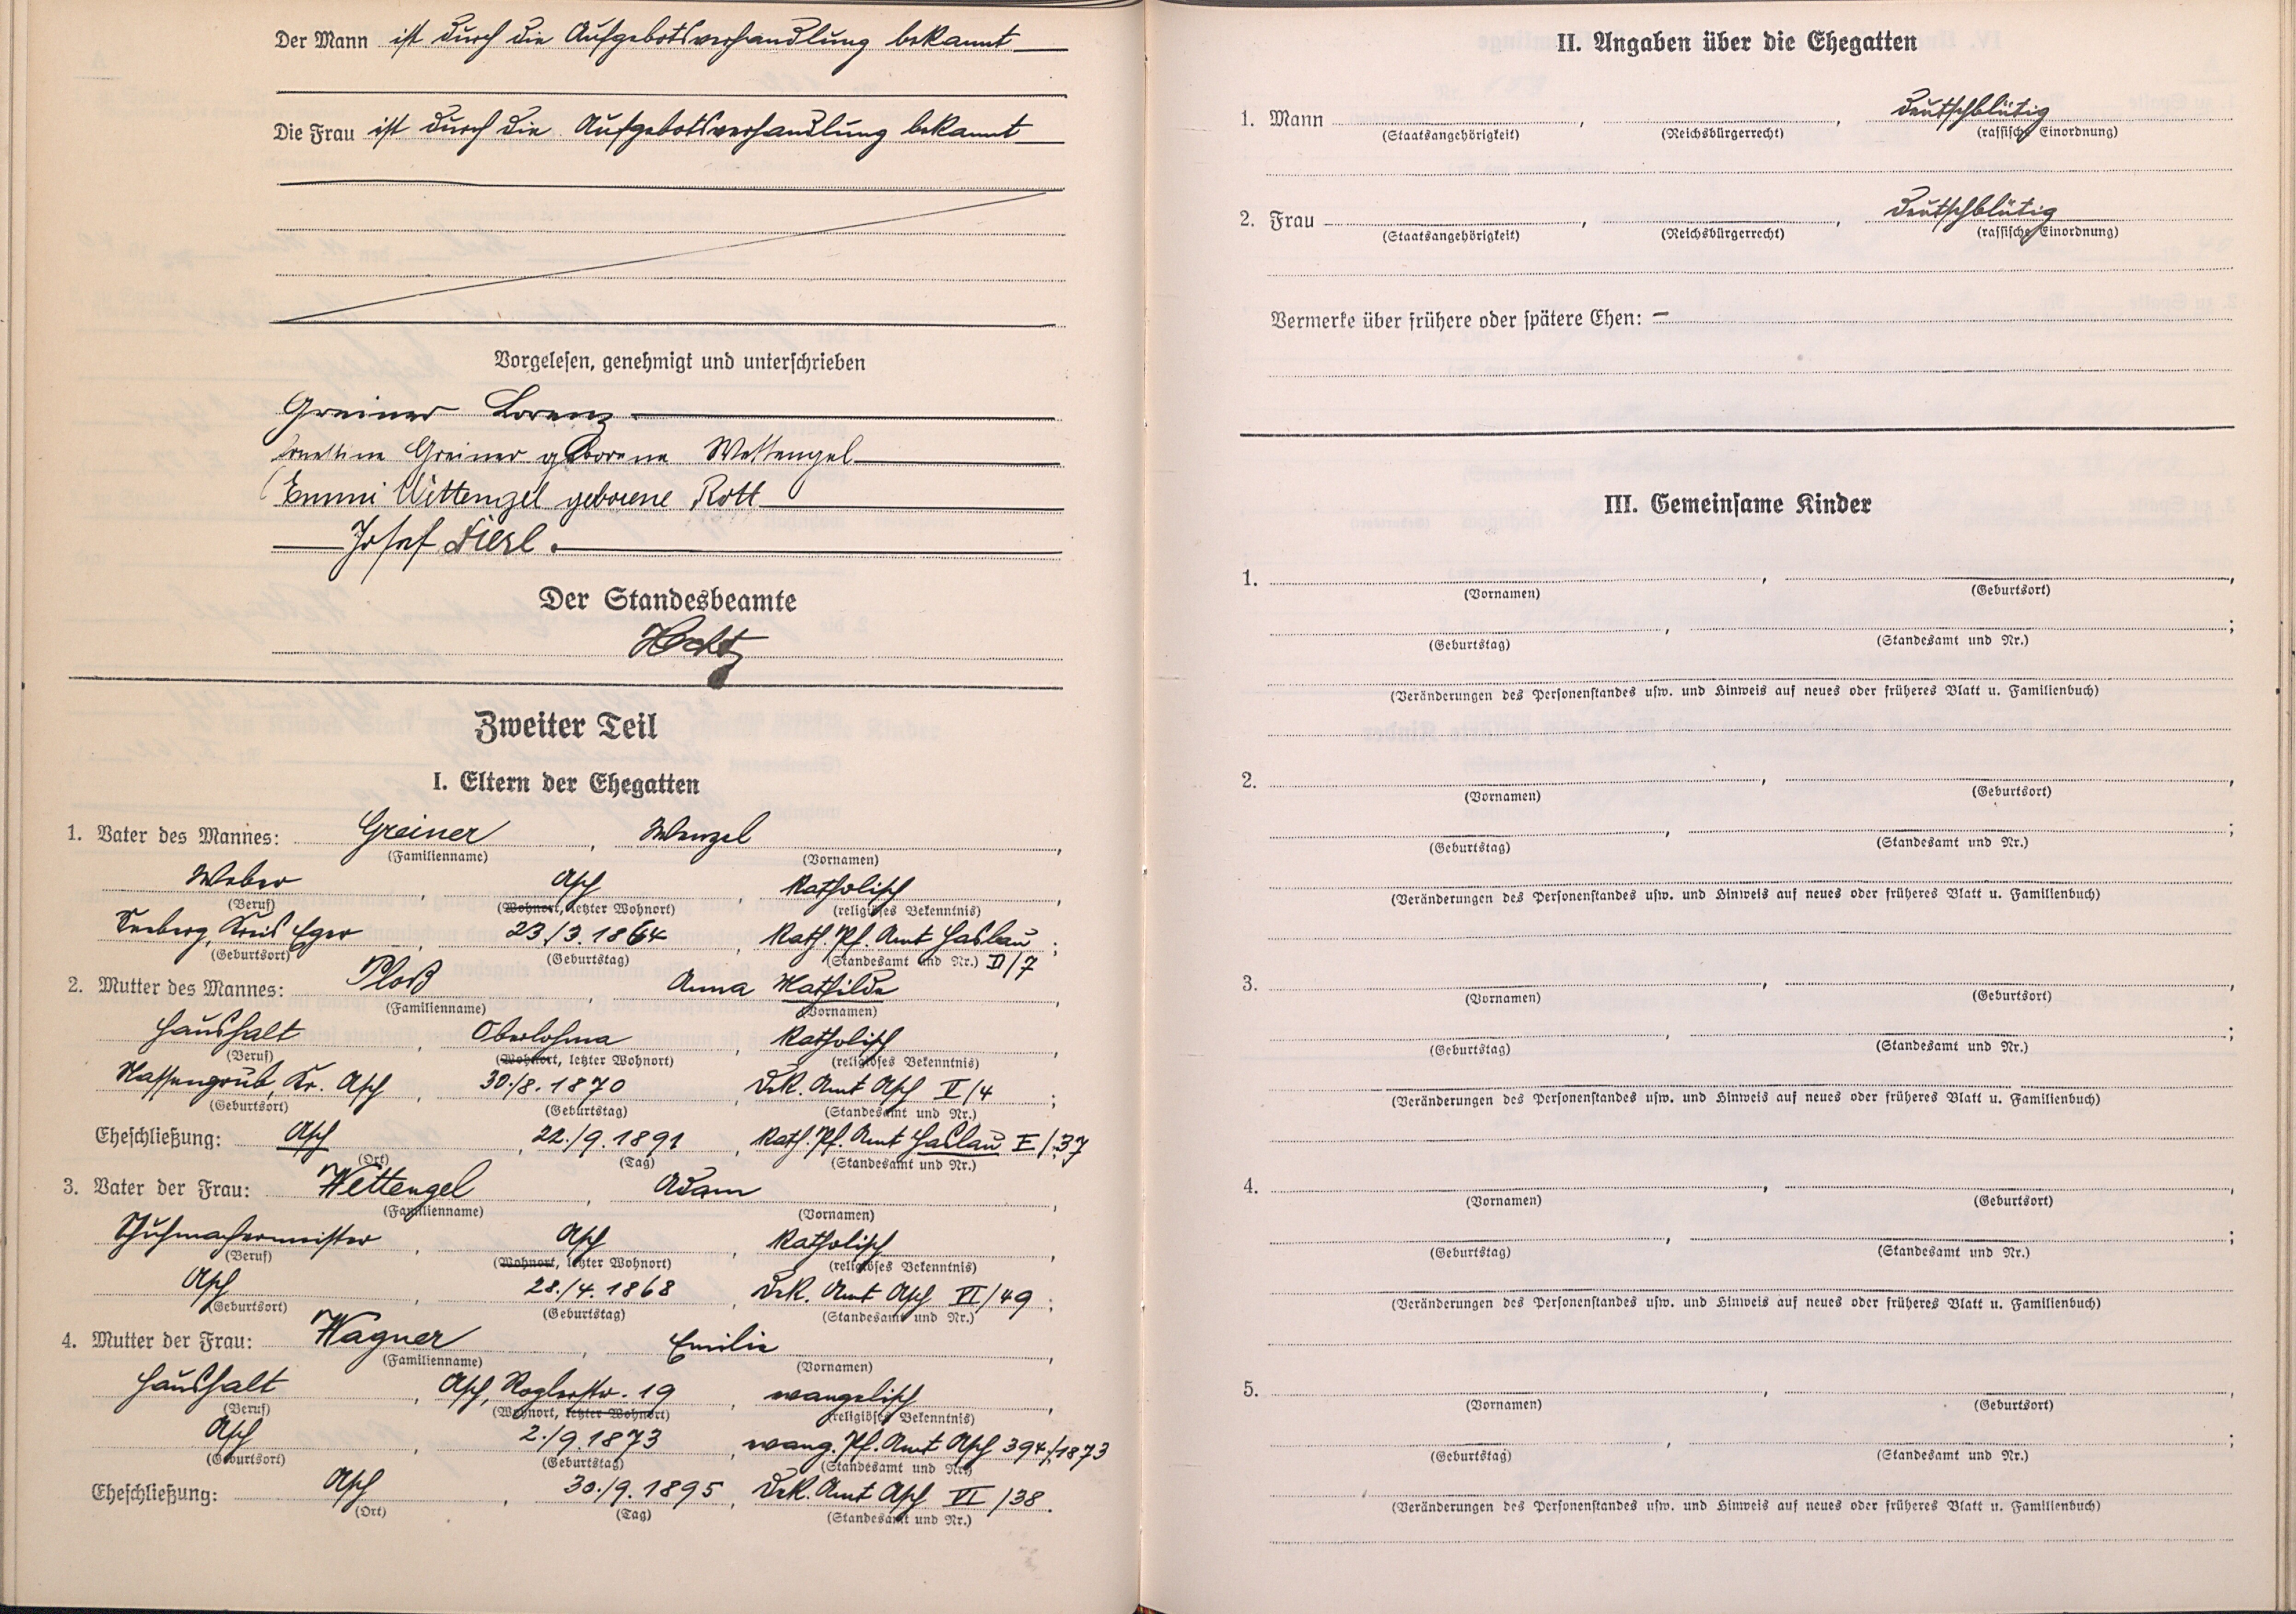 Der Mann ist durch die Aufgebotsverhandlung bekannt
Die Frau ist durch die Aufgebotsverhandlung bekannt
Vorgelesen, genehmigt und unterschrieben
Greiner Lorenz
Ernestine Greiner geborene Wettengel
Emmi Wettengel geborene Rott
Josef
Der Standesbeamte
Zweiter Teil
I. Eltern der Ehegatten
1. Vater des Mannes: Greiner, Wenzel,
(Familienname) (Vornamen)
Weber, Asch, katholisch,
(Beruf) (Wohnort, letzter Wohnort) (religiöses Bekenntnis)
Seeberg, Kreis Eger, 23./3.1864, Kath. Pf. Amt Haslau;
(Geburtsort) (Geburtstag) (Standesamt und Nr.) D/7
2. Mutter des Mannes: Ploß, Anna Mathilde,
(Familienname) (Vornamen)
Haushalt, Oberlohma, katholisch,
(Beruf) (Wohnort, letzter Wohnort) (religiöses Bekenntnis)
Nassengrub, Kr. Asch, 30./8.1870, Dek. Amt Asch V/4;
(Geburtsort) (Geburtstag) (Standesamt und Nr.)
Eheschließung: Asch, 22./9.1891, Kath. Pf. Amt Haslau E/37
(Ort) (Tag) (Standesamt und Nr.)
3. Vater der Frau: Wettengel, Adam,
(Familienname) (Vornamen)
Schuhmachermeister, Asch, katholisch,
(Beruf) (Wohnort, letzter Wohnort) (religiöses Bekenntnis)
Asch, 28./4.1868, Dek. Amt Asch VI/49;
(Geburtsort) (Geburtstag) (Standesamt und Nr.)
4. Mutter der Frau: Wagner, Emilie,
(Familienname) (Vornamen)
Haushalt, Asch, Roglerstr. 19, evangelisch,
(Beruf) (Wohnort, letzter Wohnort) (religiöses Bekenntnis)
Asch, 2./9.1873, evang. Pf. Amt Asch 394/1873
(Geburtsort) (Geburtstag) (Standesamt und Nr.)
Eheschließung: Asch, 30./9.1895, Dek. Amt Asch VI/38.
(Ort) (Tag) (Standesamt und Nr.)
II. Angaben über die Ehegatten
1. Mann, , deutschblütig
(Staatsangehörigkeit) (Reichsbürgerrecht) (rassische Einordnung)
2. Frau, , deutschblütig
(Staatsangehörigkeit) (Reichsbürgerrecht) (rassische Einordnung)
Vermerke über frühere oder spätere Ehen: –
III. Gemeinsame Kinder
1. , ,
(Vornamen) (Geburtsort)
, ;
(Geburtstag) (Standesamt und Nr.)
(Veränderungen des Personenstandes usw. und Hinweis auf neues oder früheres Blatt u. Familienbuch)
2. , ,
(Vornamen) (Geburtsort)
, ;
(Geburtstag) (Standesamt und Nr.)
(Veränderungen des Personenstandes usw. und Hinweis auf neues oder früheres Blatt u. Familienbuch)
3. , ,
(Vornamen) (Geburtsort)
, ;
(Geburtstag) (Standesamt und Nr.)
(Veränderungen des Personenstandes usw. und Hinweis auf neues oder früheres Blatt u. Familienbuch)
4. , ,
(Vornamen) (Geburtsort)
, ;
(Geburtstag) (Standesamt und Nr.)
(Veränderungen des Personenstandes usw. und Hinweis auf neues oder früheres Blatt u. Familienbuch)
5. , ,
(Vornamen) (Geburtsort)
, ;
(Geburtstag) (Standesamt und Nr.)
(Veränderungen des Personenstandes usw. und Hinweis auf neues oder früheres Blatt u. Familienbuch)